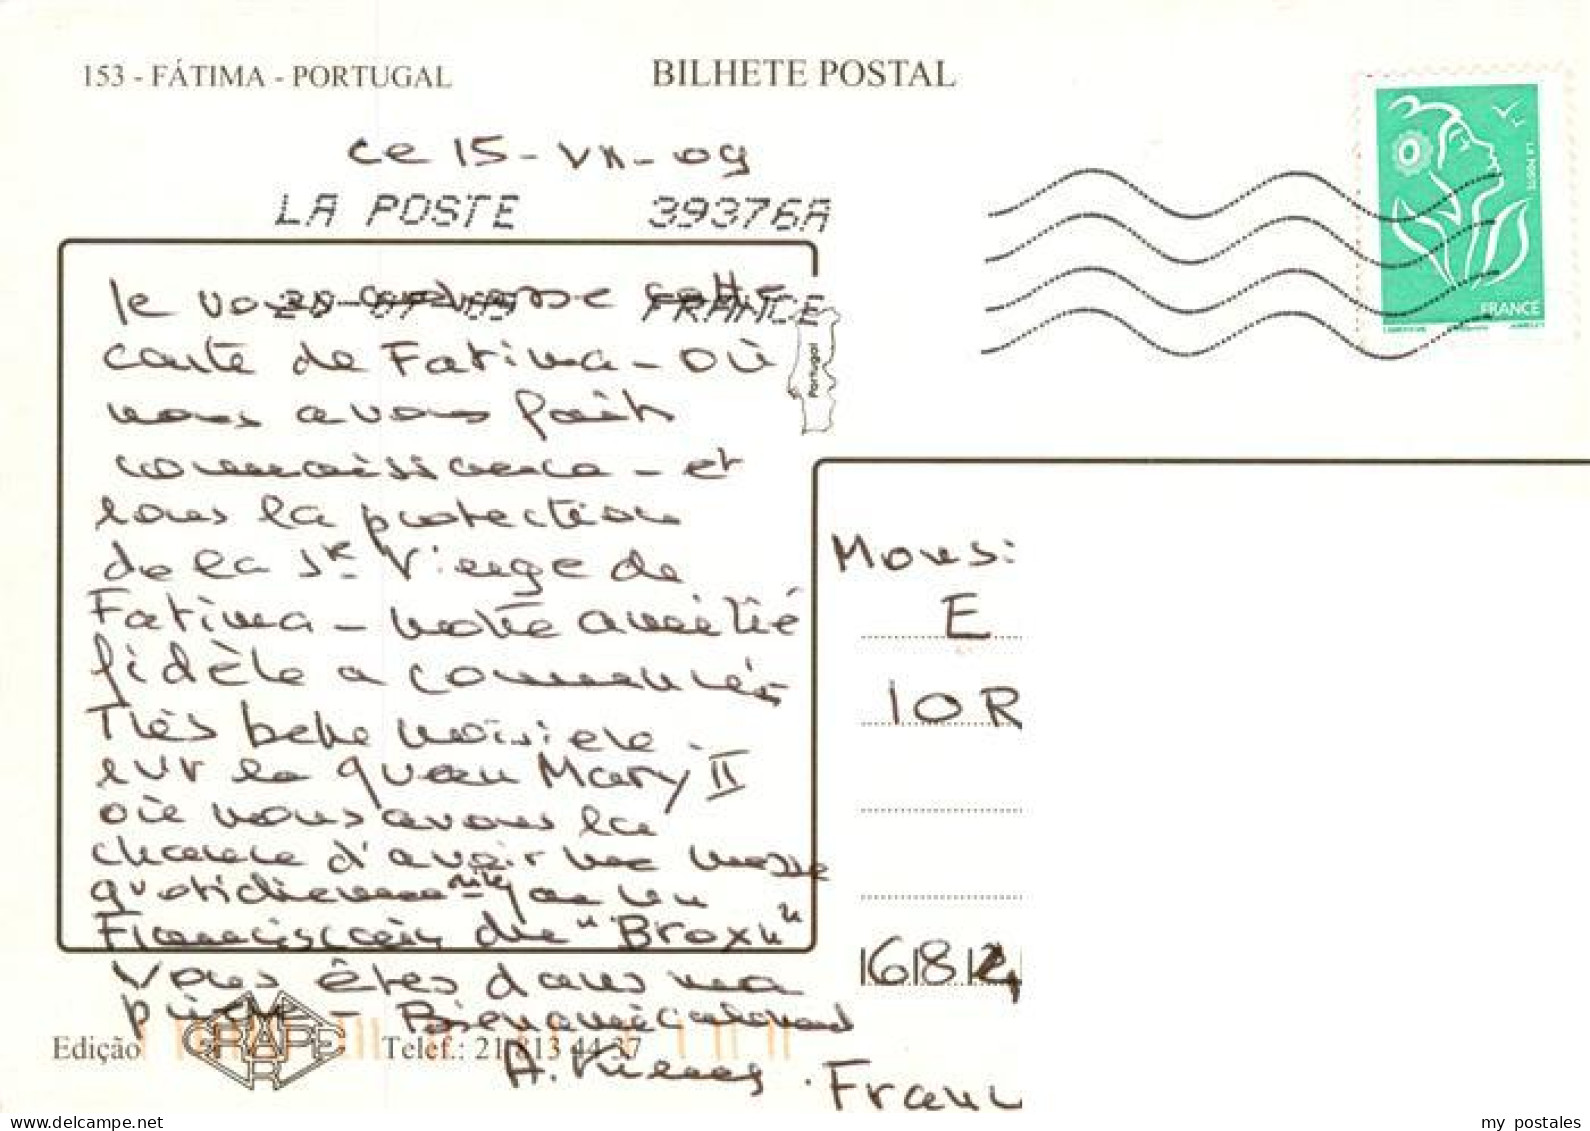 153 - FÁTIMA - PORTUGAL
BILHETE POSTAL
LA POSTE
FRANCE
ce 15-VII-09
LA POSTE 39376A
20-07-09 FRANCE
Je vous adresse cette
carte de Fatima - où
nous avons fait
connaissance - et
sous la protection
de la Ste Vierge de
Fatima - notre amitié
fidèle a commencé
Très belle croisière
sur le Queen Mary II
où nous avons la
chance d'avoir une messe
quotidienne par un
Franciscain du "Bronx"
Vous êtes dans ma
prière - Bien amicalement
A.
Portugal
Mons
E
10 R
1681
Franc
Edição GRAPE MAR Telef.: 21 813 44 37
my postales